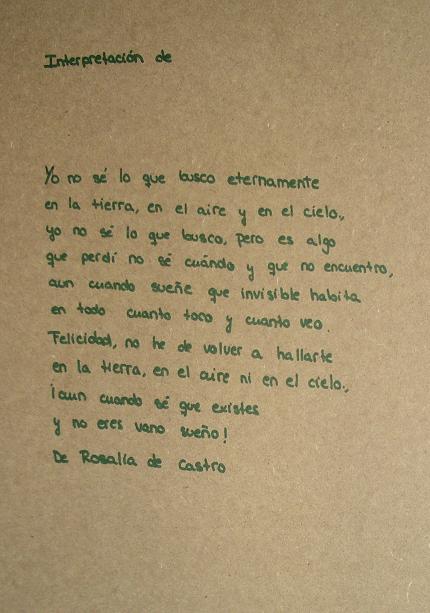 Interpretación de
Yo no sé lo que busco eternamente
en la tierra, en el aire y en el cielo.,
yo no sé lo que busco, pero es algo
que perdí no sé cuándo y que no encuentro,
aun cuando sueñe que invisible habita
en todo cuanto toco y cuanto veo.
Felicidad, no he de volver a hallarte
en la tierra, en el aire ni en el cielo.,
¡aun cuando sé que existes
y no eres vano sueño!
De Rosalía de Castro